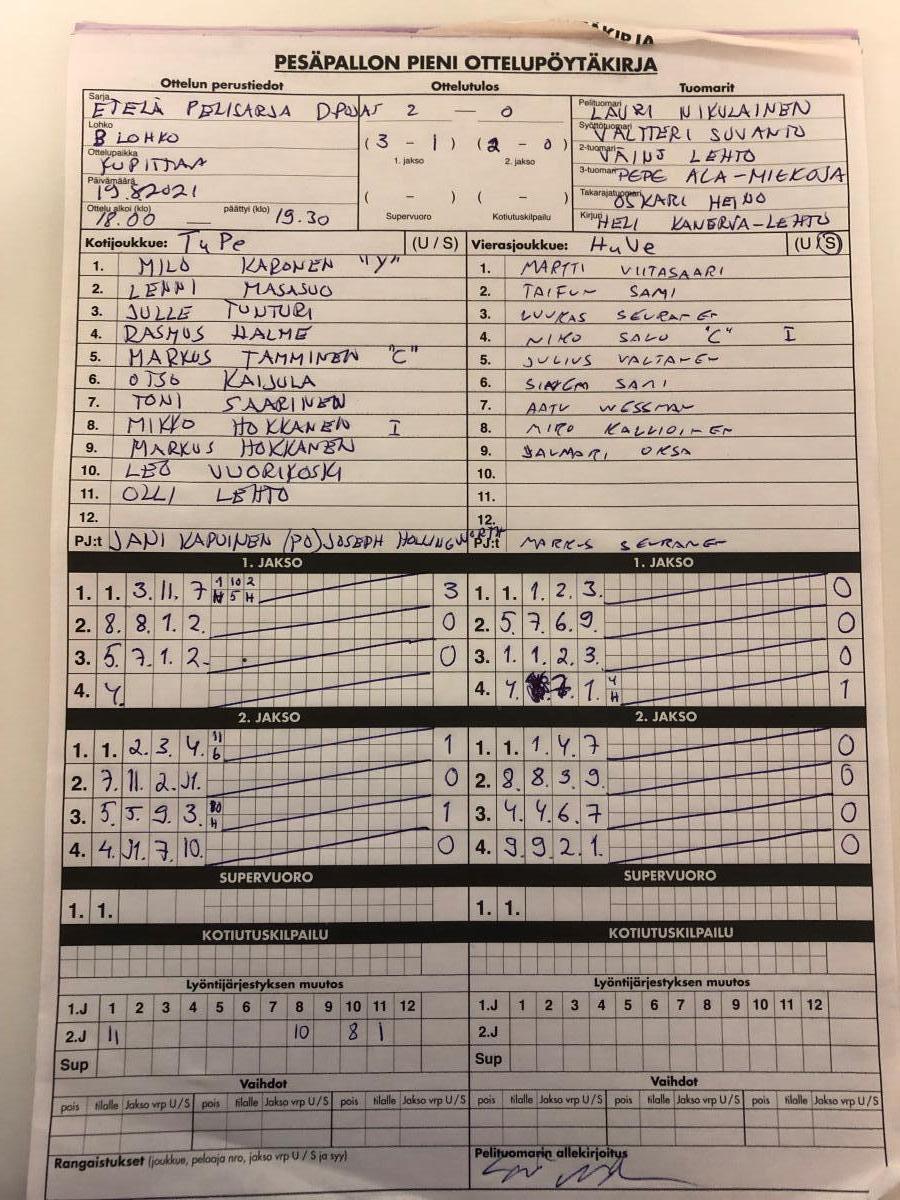 PESÄPALLON PIENI OTTELUPÖYTÄKIRJA
Ottelun perustiedot Ottelutulos Tuomarit
Sarja ETELÄ PELISARJA D-POJAT 2 — 0 Pelituomari LAURI NIKULAINEN
Lohko B LOHKO (3 - 1) (2 - 0) Syöttötuomari VALTTERI SUVANTO
1. jakso 2. jakso
Ottelupaikka KUPITTAA 2-tuomari VÄINÖ LEHTO
Päivämäärä 19.8.2021 ( - ) ( - ) 3-tuomari PEPE ALA-MIEKOJA
Takarajatuomari OSKARI HEINO
Ottelu alkoi (klo) 18.00 — päättyi (klo) 19.30 Supervuoro Kotiutuskilpailu Kirjuri HELI KANERVA-LEHTO
Kotijoukkue: TuPe (U / S) Vierasjoukkue: HuVe (U / S)
1. MILO KARONEN "Y" 1. MARTTI VIITASAARI
2. LENNI MASASUO 2. TAIFUN SAMI
3. JULLE TUNTURI 3. LUUKAS SEURANEN
4. RASMUS HALME 4. NIKO SALO "C" I
5. MARKUS TAMMINEN "C" 5. JULIUS VALTANEN
6. OTSO KAIJULA 6. SINEM SAMI
7. TONI SAARINEN 7. AATU WESSMAN
8. MIKKO HOKKANEN I 8. MIRO KALLIOINEN
9. MARKUS HOKKANEN 9. JALMARI OKSA
10. LEO VUORIKOSKI 10.
11. OLLI LEHTO 11.
12. 12.
PJ:t JANI KAPUINEN (PO) JOSEPH HOLLINGWORTH PJ:t MARKUS SEURANEN
1. JAKSO 1. JAKSO
1. 1. 3. 11. 7 1 10 2 N 5 H 3 1. 1. 1. 2. 3. 0
2. 8. 8. 1. 2. 0 2. 5. 7. 6. 9. 0
3. 5. 7. 1. 2. 0 3. 1. 1. 2. 3. 0
4. 4. 4. 4. 7. 1. 4 H 1
2. JAKSO 2. JAKSO
1. 1. 2. 3. 4. 11 6 1 1. 1. 1. 4. 7 0
2. 7. 11. 2. 11. 0 2. 8. 8. 3. 9. 0
3. 5. 5. 9. 3. 10 H 1 3. 4. 4. 6. 7 0
4. 4. 11. 7. 10. 0 4. 9. 9. 2. 1. 0
SUPERVUORO SUPERVUORO
1. 1. 1. 1.
KOTIUTUSKILPAILU KOTIUTUSKILPAILU
Lyöntijärjestyksen muutos Lyöntijärjestyksen muutos
1.J 1 2 3 4 5 6 7 8 9 10 11 12 1.J 1 2 3 4 5 6 7 8 9 10 11 12
2.J 11 10 8 1 2.J
Sup Sup
Vaihdot Vaihdot
pois tilalle Jakso vrp U/S pois tilalle Jakso vrp U/S pois tilalle Jakso vrp U/S pois tilalle Jakso vrp U/S pois tilalle Jakso vrp U/S pois tilalle Jakso vrp U/S
Rangaistukset (joukkue, pelaaja nro, jakso vrp U / S ja syy) Pelituomarin allekirjoitus